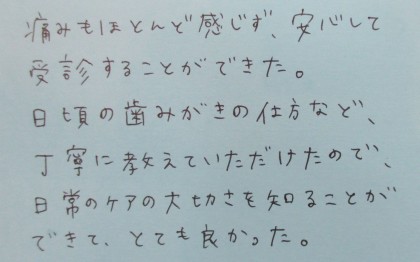 痛みもほとんど感じず、安心して
受診することができた。
日頃の歯みがきの仕方など、
丁寧に教えていただけたので、
日常のケアの大切さを知ることが
できて、とても良かった。